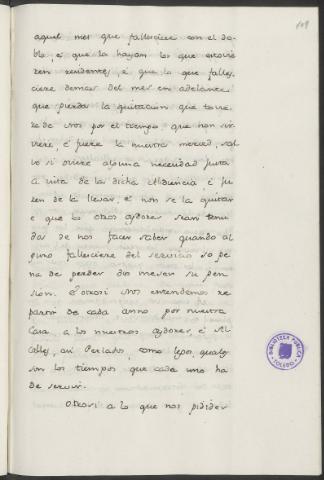 108
aquel mes que fallesciere con el do-
blo, e que la hayan los que estovie
ren residentes, e que lo que falles-
ciere demas del mes en adelante
que pierda la quitacion que tovie
re de Nos por el tiempo que non sir
viere, e fuere la nuestra merced, sal
vo si oviere alguna necesidad justa
a vista de la dicha Audiencia e pu
den de la llevar, e non se la quitar
e que los otros oydores sean tenu
dos de nos facer saber quando al
guno fallesciere del servicio so pe
na de perder dos meses su pen
sion. Otrosi Nos entendemos re
partir de cada anno por nuestra
Carta a los nuestros oydores, e Al
calles, asi Perlados, como legos, quales
son los tiempos que cada uno ha
de servir.
Otrosi a lo que nos pidides
BIBLIOTECA PUBLICA
TOLEDO